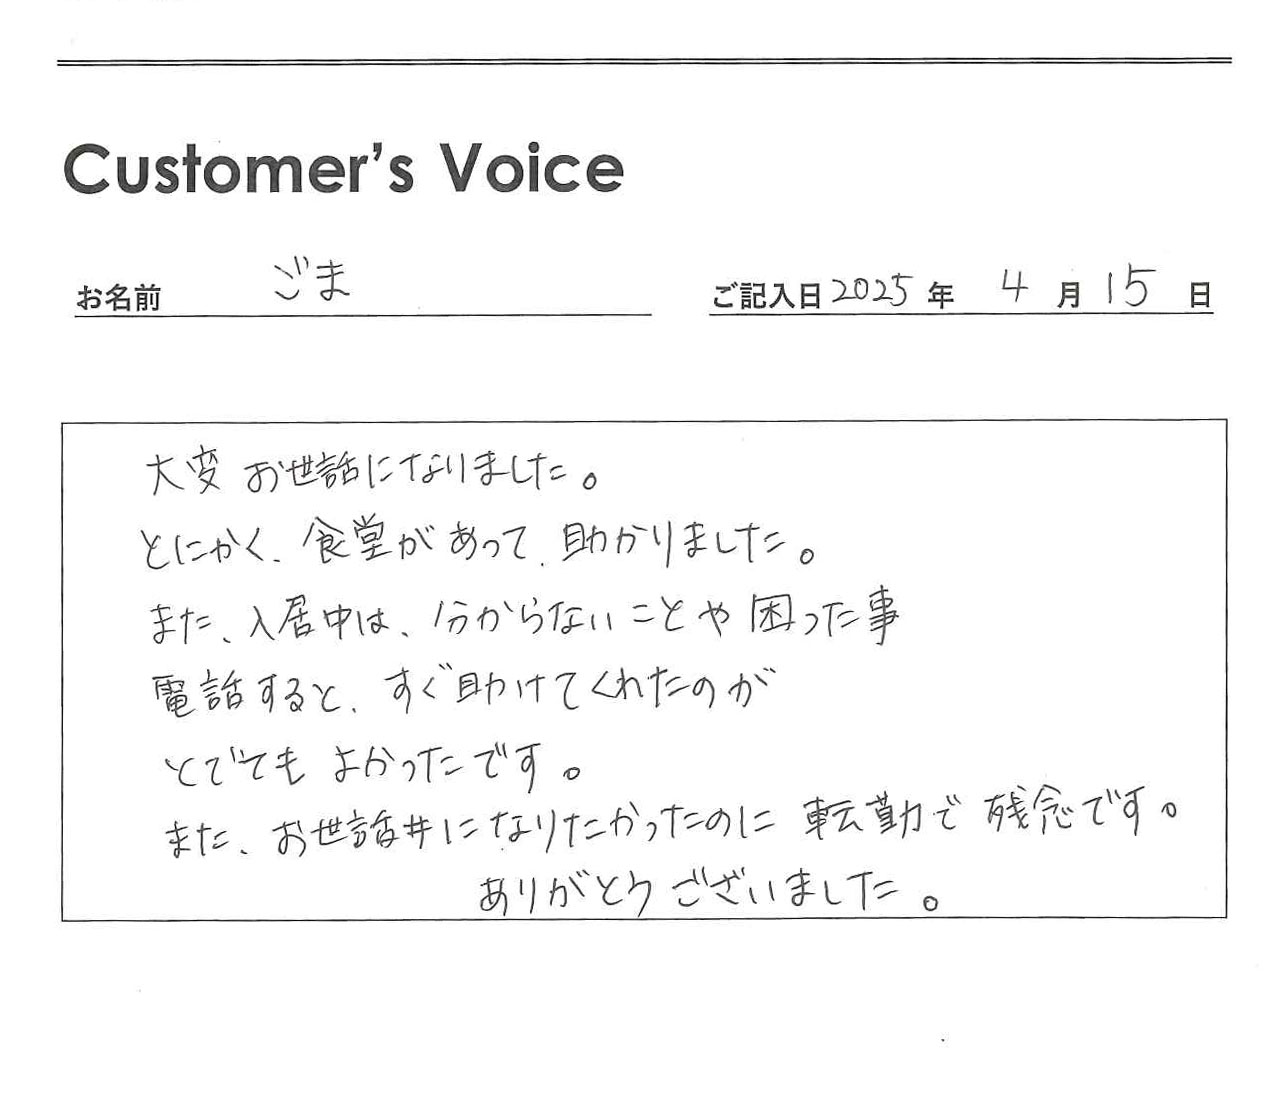 Customer's Voice
お名前 ごま ご記入日 2025 年 4 月 15 日
大変 お世話になりました。
とにかく、食堂があって、助かりました。
また、入居中は、分からないことや困った事
電話すると、すぐ助けてくれたのが
とでても よかったです。
また、お世話井になりたかったのに 転勤で 残念です。
ありがとう ございました。